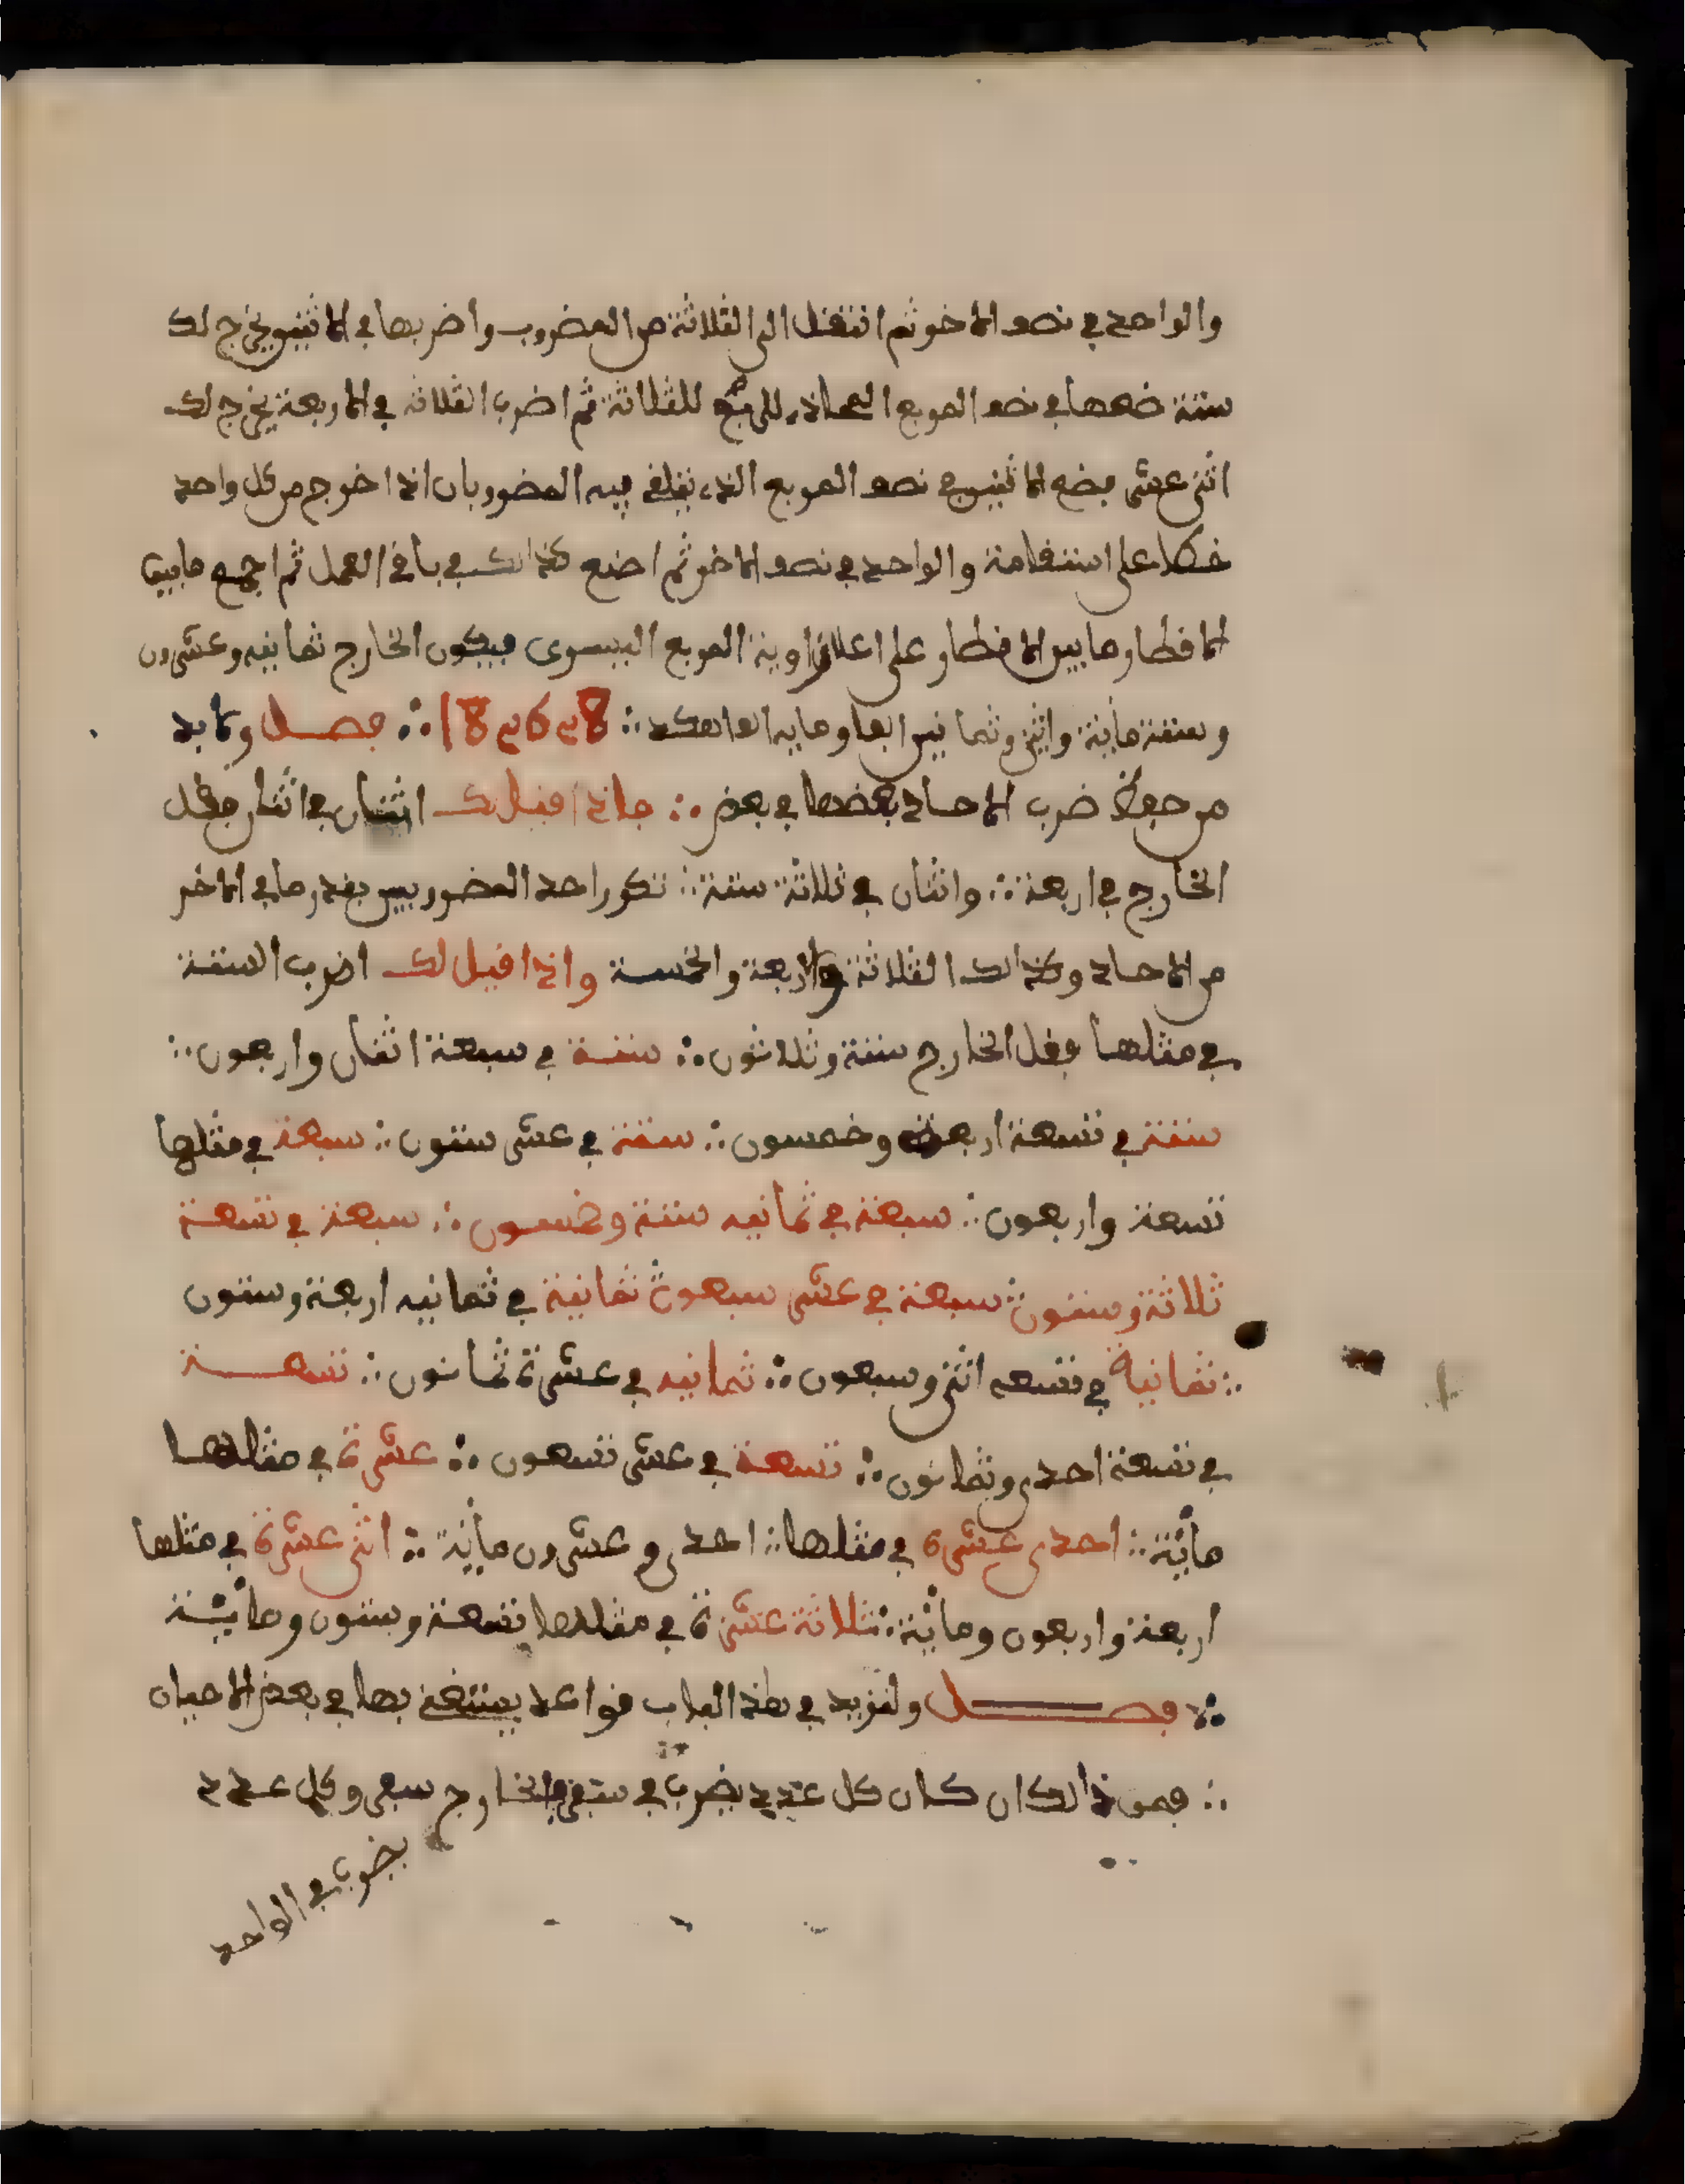 والواحد في نصف الاخر ثم انتقل الى الثلاثة من المضروب واضربها في الاثنين يخرج لك
ستة ضعها في نصف المربع للثلاثة ثم اضرب الثلاثة في الاربعة يخرج لك
اثنى عشر فضع الاثنين في نصف المربع الذي يلتقى فيه المضروبان اذا اخرج من كل واحد
خطا على استقامة والواحد في نصف الاخر ثم اصنع كذالك في باقي العمل ثم اجمع مابين
الاقطار ومابين الاقطار على اعلا زاوية المربع اليسرى فيكون الخارج ثمانيه وعشرون
وستة ماية واثنى وثمانين الفا ومايه الف هكذ ∴ 182628 ∴ فصل ولابد
من حفظ ضرب الاحاد بعضها في بعض ∴ فاذا قيل لك اثنان في اثنان فقل
الخارج اربعة ∴ واثنان في ثلاثة ستة ∴ تكرر احد المضروبين بقدر ما في الاخر
من الاحاد وكذالك الثلاثة والاربعة والخمسة واذا قيل لك اضرب الستة
في مثلها فقل الخارج ستة وثلاثون ∴ ستة في سبعة اثنان واربعون ∴
ستة في تسعة اربعة وخمسون ∴ ستة في عشر ستون ∴ سبعة في مثلها
تسعة واربعون ∴ سبعة في ثمانيه ستة وخمسون ∴ سبعة في تسعة
ثلاثة وستون ∴ سبعة في عشر سبعون ∴ ثمانية في ثمانيه اربعة وستون
∴ ثمانية في تسعه اثنى وسبعون ∴ ثمانيه في عشرة ثمانون ∴ تسعة
في تسعة احدى وثمانون ∴ تسعة في عشر تسعون ∴ عشرة في مثلها
مائة ∴ احدى عشرة في مثلها ∴ احدى وعشرون مائة ∴ اثنى عشرة في مثلها
اربعة واربعون ومائة ∴ ثلاثة عشرة في مثلها تسعة وستون ومائة
∴ فصل ولنزيد في هذا الباب قواعد ينتفع بها في بعض الاحيان
∴ فمن ذالك ان كان كل عدد يضرب في الخارج وكل عدد
يضرب في الواحد